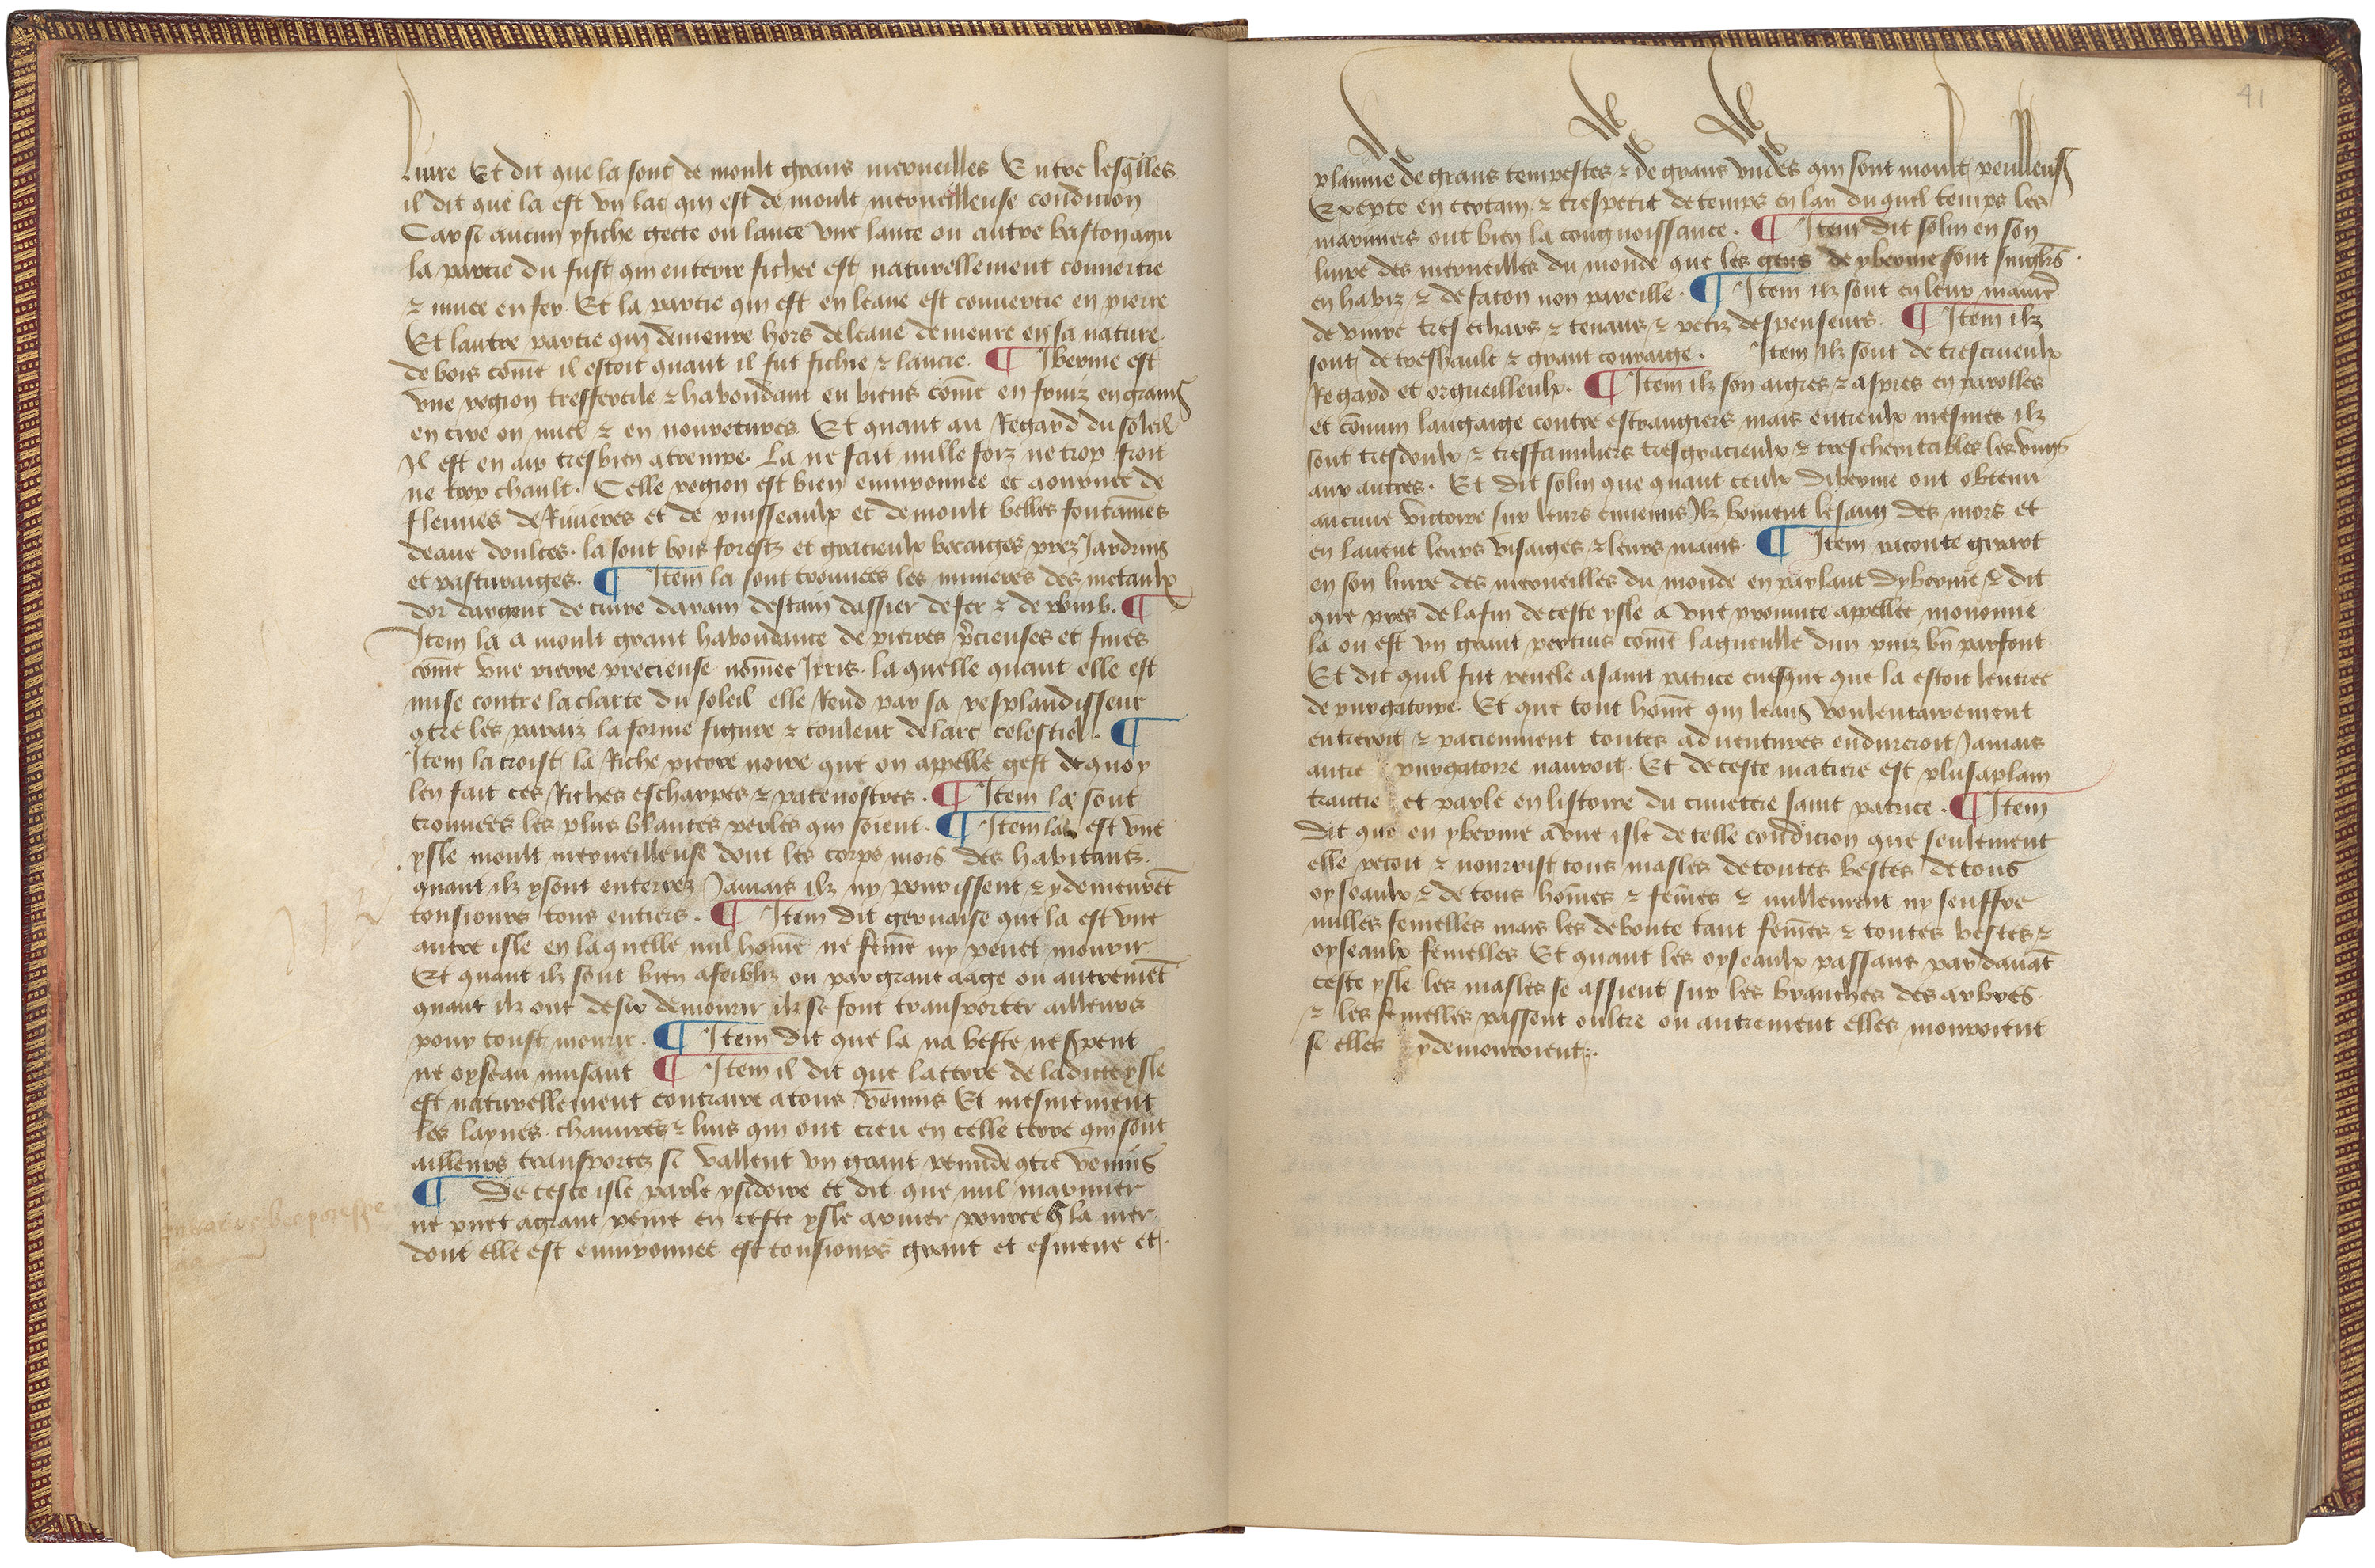 liure Et dit que la sont de moult grans merueilles Entre lesq̃lles
il dit que la est vn lac qui est de moult merueilleuse condicion
Car si aucun y fiche gecte ou lance vne lance ou autre baston agu
la partie du fust qui en terre fichee est naturellement conuertie
⁊ muee en fer. Et la partie qui est en leaue est conuertie en pierre
Et lautre partie qui demeure hors de leaue demeure en sa nature
de bois com̃e il estoit quant il fut fichie ⁊ lancie. ¶ Ibernie est
vne region tresfertile ⁊ habondant en biens com̃e en fruiz en grains
en cire ou miel ⁊ en nourretures. Et quant au Regard du soleil
Il est en air tres bien atrempe. La ne fait nulle foiz ne trop froit
ne trop chault. Celle region est bien enuironnee et aournee de
fleuues de Riuieres et de ruisseaulx et de moult belles fontain̄es
deaue doulces. la sont bois forestz et gracieulx bocaiges prez Jardrins
et pasturaiges. ¶ Item la sont trouuees les minieres des metaulx
dor dargent de cuiure darain destain dassier de fer ⁊ de plomb. ¶
Item la a moult grant habondance de pierres p̃cienses et fines
com̃e vne pierre precieuse nom̃ee Irris. la quelle quant elle est
mise contre la clarte du soleil elle Rend par sa resplandisseur
ꝯtre les paraiz la forme figure ⁊ couleur de larc celestiel. ¶
Item la croist la Riche pierre noire que on appelle gest de quoy
len fait ces Riches escharpes ⁊ patenostres. ¶ Item la sont
trouuees les plus blances perles qui soient. ¶ Item la est vne
ysle moult merueilleuse dont les corps mors des habitans
quant ilz y sont enterrez Jamais ilz ny pourrissent ⁊ y demeurẽt
tousiours tous entiers. ¶ Item dit geruaise que la est vne
autre isle en la quelle nul hom̃e ne fem̃e ny peuet mourir
Et quant ilz sont bien afeibliz ou par grant aage ou autremẽt
quant ilz ont desir de mourir ilz se font transporter ailleurs
pour toust mourir. ¶ Item dit que la na beste ne serpent
ne oyseau nuisant ¶ Item il dit que la terre de ladicte ysle
est naturellement contraire a tous venins Et mesmement
les laynes chanures ⁊ lins qui ont creu en celle terre qui sont
ailleurs transportez si vallent vn grant remide ꝯtre venins
¶ De ceste isle parle ysidoire et dit que nul marinier
ne puet a grant peine en ceste ysle arriuer pource q̃ la mer
dont elle est enuironnee est tousiours grant et esmeue et
plainne de grans tempestes ⁊ de grans vndes qui sont moult perilleuses
Excepte en certain ⁊ trespetit de temps en lan du quel temps les
mariniers ont bien la congnoissance. ¶ Item dit solin en son
liure des merueilles du monde que les gens de ybernie sont singlr̃s
en habiz ⁊ de facon non pareille. ¶ Item ilz sont en leur manie͂
de viure tres echars ⁊ tenans ⁊ petiz despenseurs. ¶ Item ilz
sont de treshault ⁊ grant couraige. Item ilz sont de trescrueulx
Regard et orgueilleulx. ¶ Item ilz son aigres ⁊ aspres en parolles
et com̃un langaige contre estrangiers mais entreulx mesmes ilz
sont tresdoulx ⁊ tresfamiliers tresgracieulx ⁊ trescheritables les vngs
aux autres. Et dit solin que quant ceulx dibernie ont obtenu
aucune victoire sur leurs ennemis Ilz boiuent le sang des mors et
en lauent leurs visaiges ⁊ leurs mains. ¶ Item raconte girart
en son liure des merueilles du monde en parlant dybernie ⁊ dit
que pres de la fin de ceste ysle a vne prouince appellee mononie
la ou est vn grant pertuis com̃e la gueulle dun puiz bñ parfont
Et dit quil fut reuele a saint patrice euesque que la estoit lentree
de purgatoire. Et que tout hom̃e qui leans voulentairement
entreroit ⁊ paciemment toutes aduentures endureroit Jamais
autre purgatoire nauroit. Et de ceste matiere est plus a plain
traictie et parle en listoire du cimetire saint patrice. ¶ Item
dit que en ybernie a vne isle de telle condicion que seulement
elle recoit ⁊ nourrist tous masles de toutes bestes de tous
oyseaulx ⁊ de tous hom̃es ⁊ fem̃es ⁊ nullement ny seuffre
nulles femelles mais les deboute tant fem̃es ⁊ toutes bestes ⁊
oyseaulx femelles Et quant les oyseaulx passans par dauãt
ceste ysle les masles se assient sur les branches des arbres
⁊ les femelles passent oultre ou autrement elles mourroient
si elles y demouroient.
41